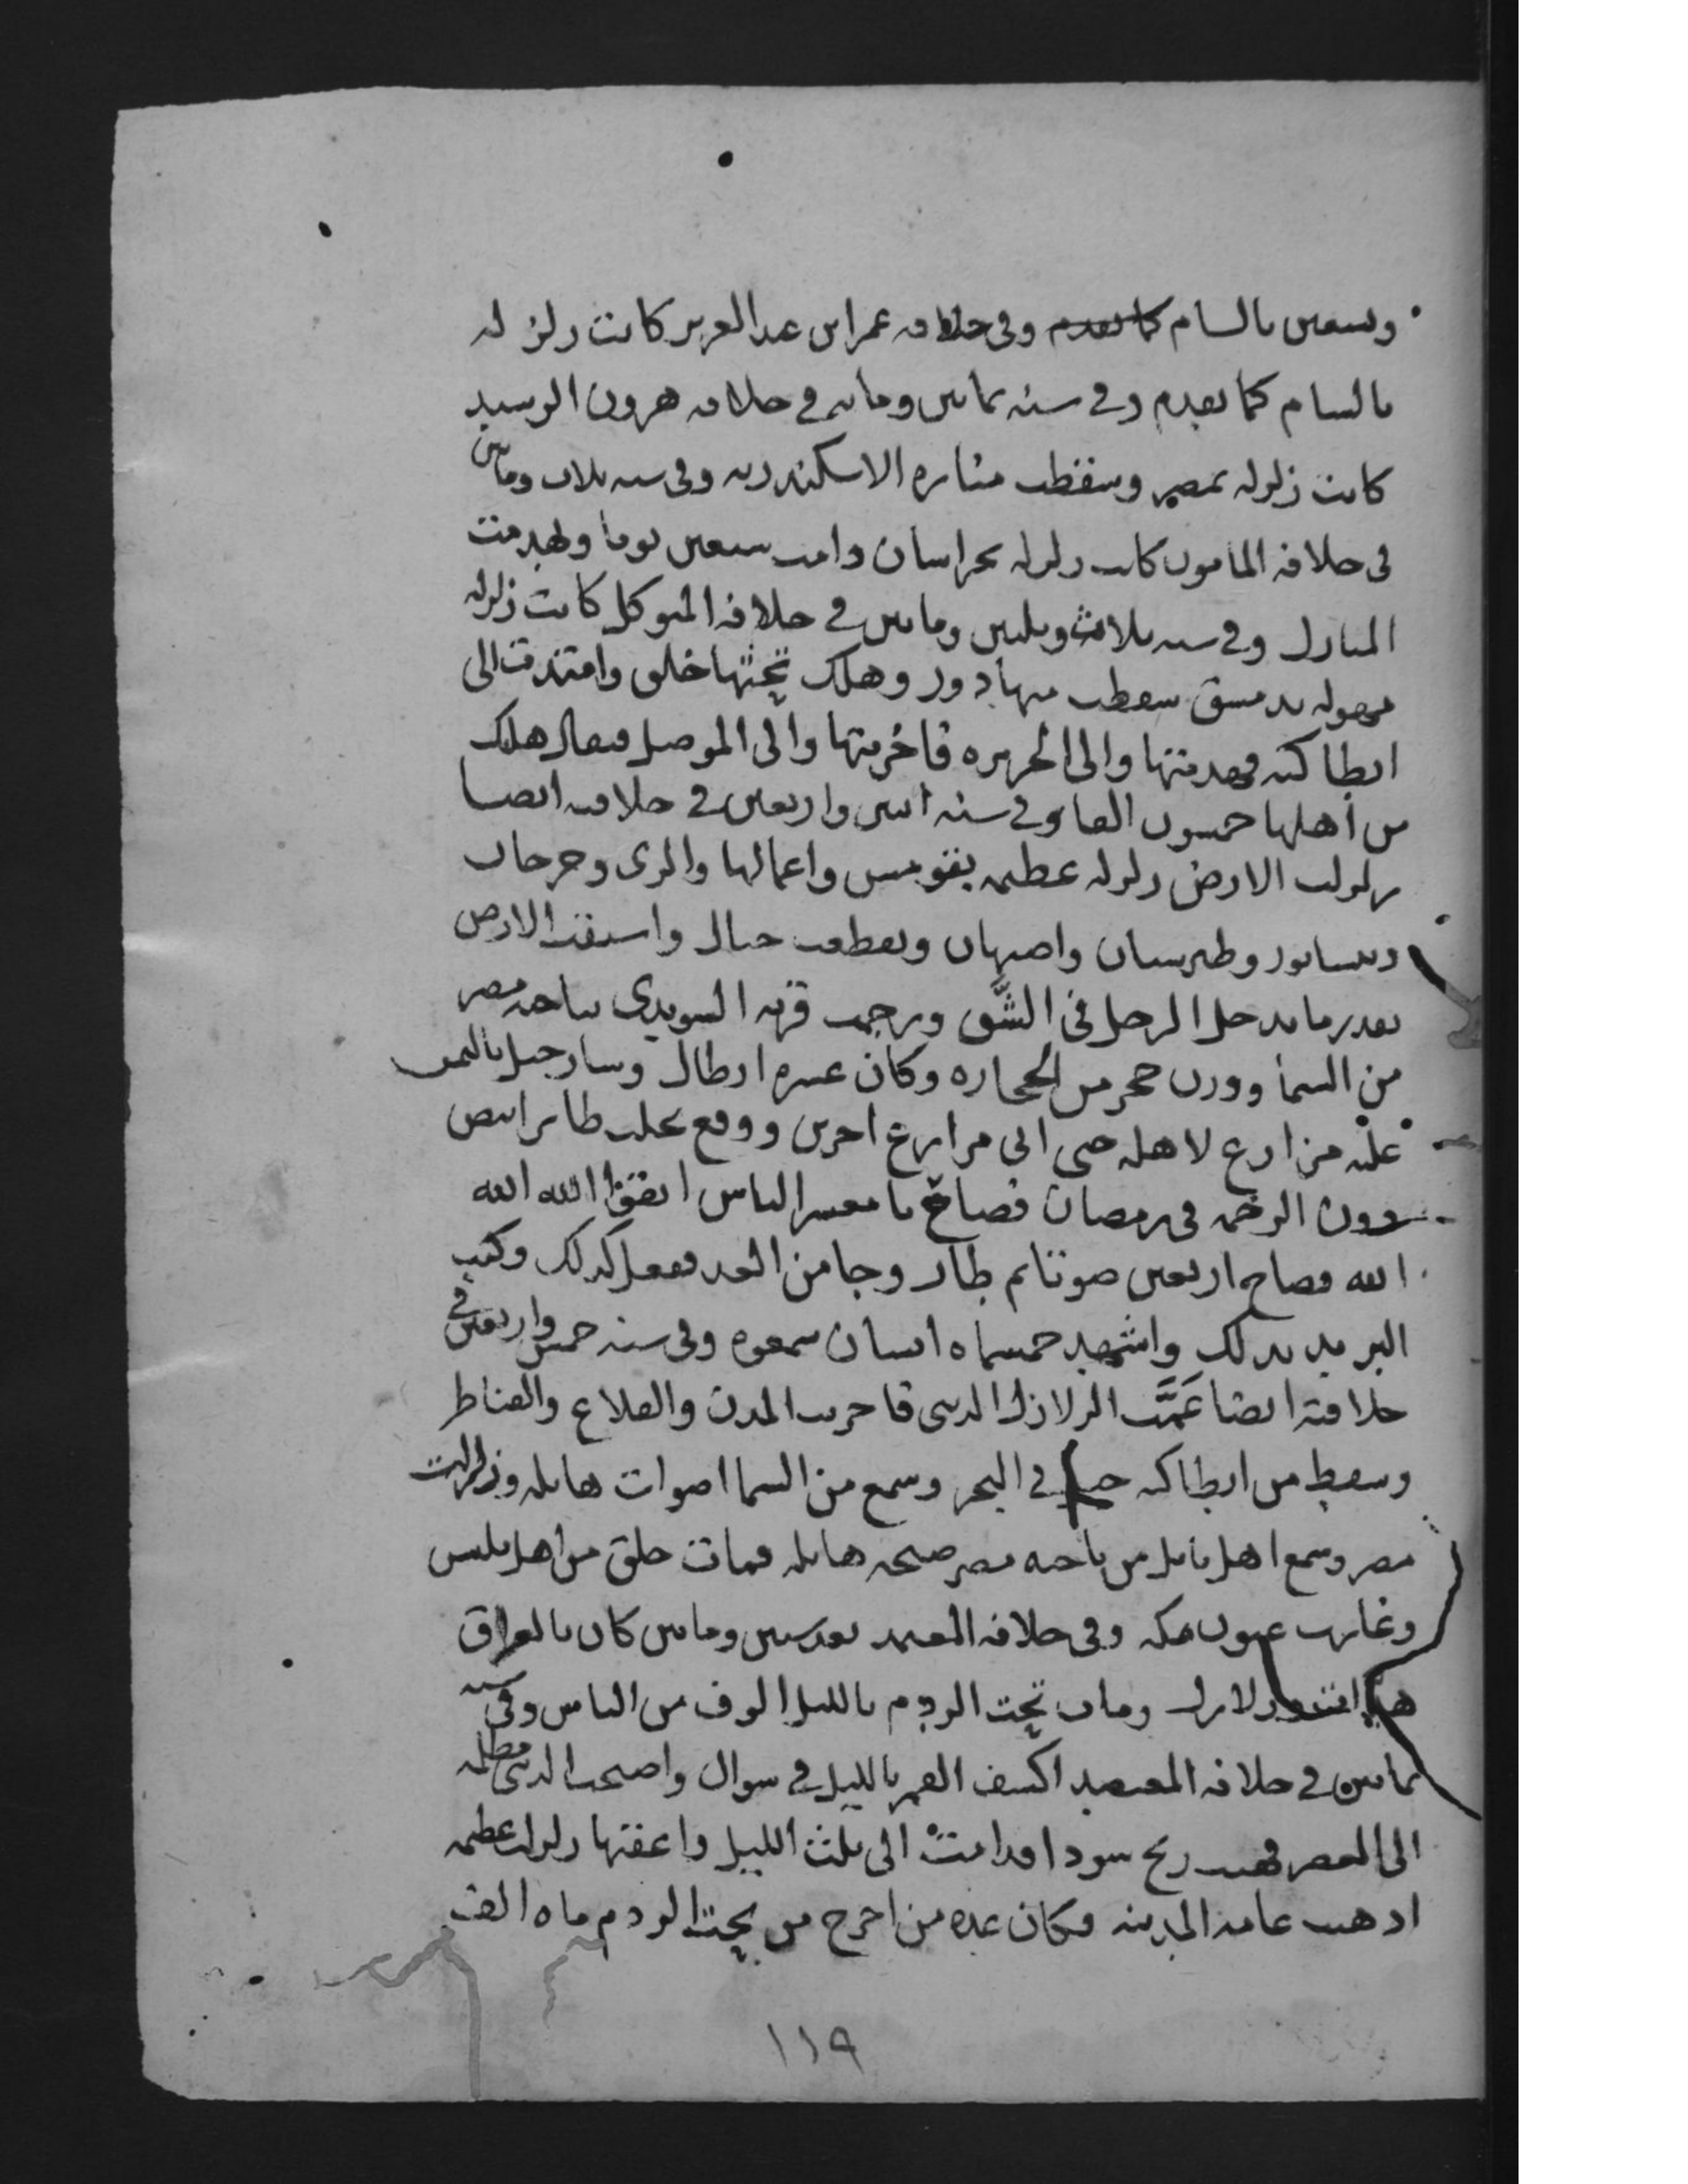 وتسعين بالشام كما تقدم وفي خلافه عمر ابن عبد العزيز كانت زلزله
بالشام كما تقدم وفي سنه ثمانين ومايه في خلافه هرون الرشيد
كانت زلزله بمصر وسقطت مناره الاسكندريه وفي سنه ثلاث ومايتين
في خلافه المأمون كانت زلزله بخراسان دامت سبعين يوما وتهدمت
المنازل وفي سنه ثلاث وثلثين ومايتين في خلافه المتوكل كانت زلزله
مهوله بدمشق سقطت منها دور وهلك تحتها خلق وامتدت الى
انطاكيه فهدمتها والى الجزيره فاخربتها والى الموصل فيقال هلك
من اهلها خمسون الفا وفي سنه اثنين واربعين في خلافته ايضا
زلزلت الارض زلزله عظيمه بقومس واعمالها والرى وجرجان
ونيسابور وطبرستان واصبهان وتقطعت جبال وانشقت الارض
بقدر ما يدخل الرجل في الشق ورجمت قريه السويدى بناحيه مصر
من السما ووزن حجر من الحجاره وكان عشره ارطال وسار جبل باليمن
عليه مزارع لاهله حتى اتى مزارع اخرين ووقع بحلب طاير ابيض
دون الرخمه في رمضان فصاح يا معشر الناس اتقوا الله الله
الله فصاح اربعين صوتا ثم طار وجا من الغد ففعل كذلك وكتب
البريد بذلك واشهد خمسمايه انسان سمعوه وفي سنه خمس واربعين في
خلافته ايضا عمت الزلازل الدنيا فاخربت المدن والقلاع والقناطر
وسقط من انطاكيه جبل في البحر وسمع من السما اصوات هايله وزلزلت
مصر وسمع اهل بلبيس من ناحيه مصر صيحه هايله فمات خلق من اهل بلبيس
وغارت عيون مكه وفي خلافه المعتمد بعد ستين ومايتين كان بالعراق
زلازل ومات تحت الردم بالليل الوف من الناس وفي سنه
ثمانين في خلافه المعتضد اكسف القمر بالليل في شوال واصبحت الدنيا مظلمه
الى العصر فهبت ريح سودا فدامت الى ثلث الليل واعقبها زلزله عظيمه
اذهبت عامه المدينه وكان عده من اخرج من تحت الردم مايه الف
١١٩